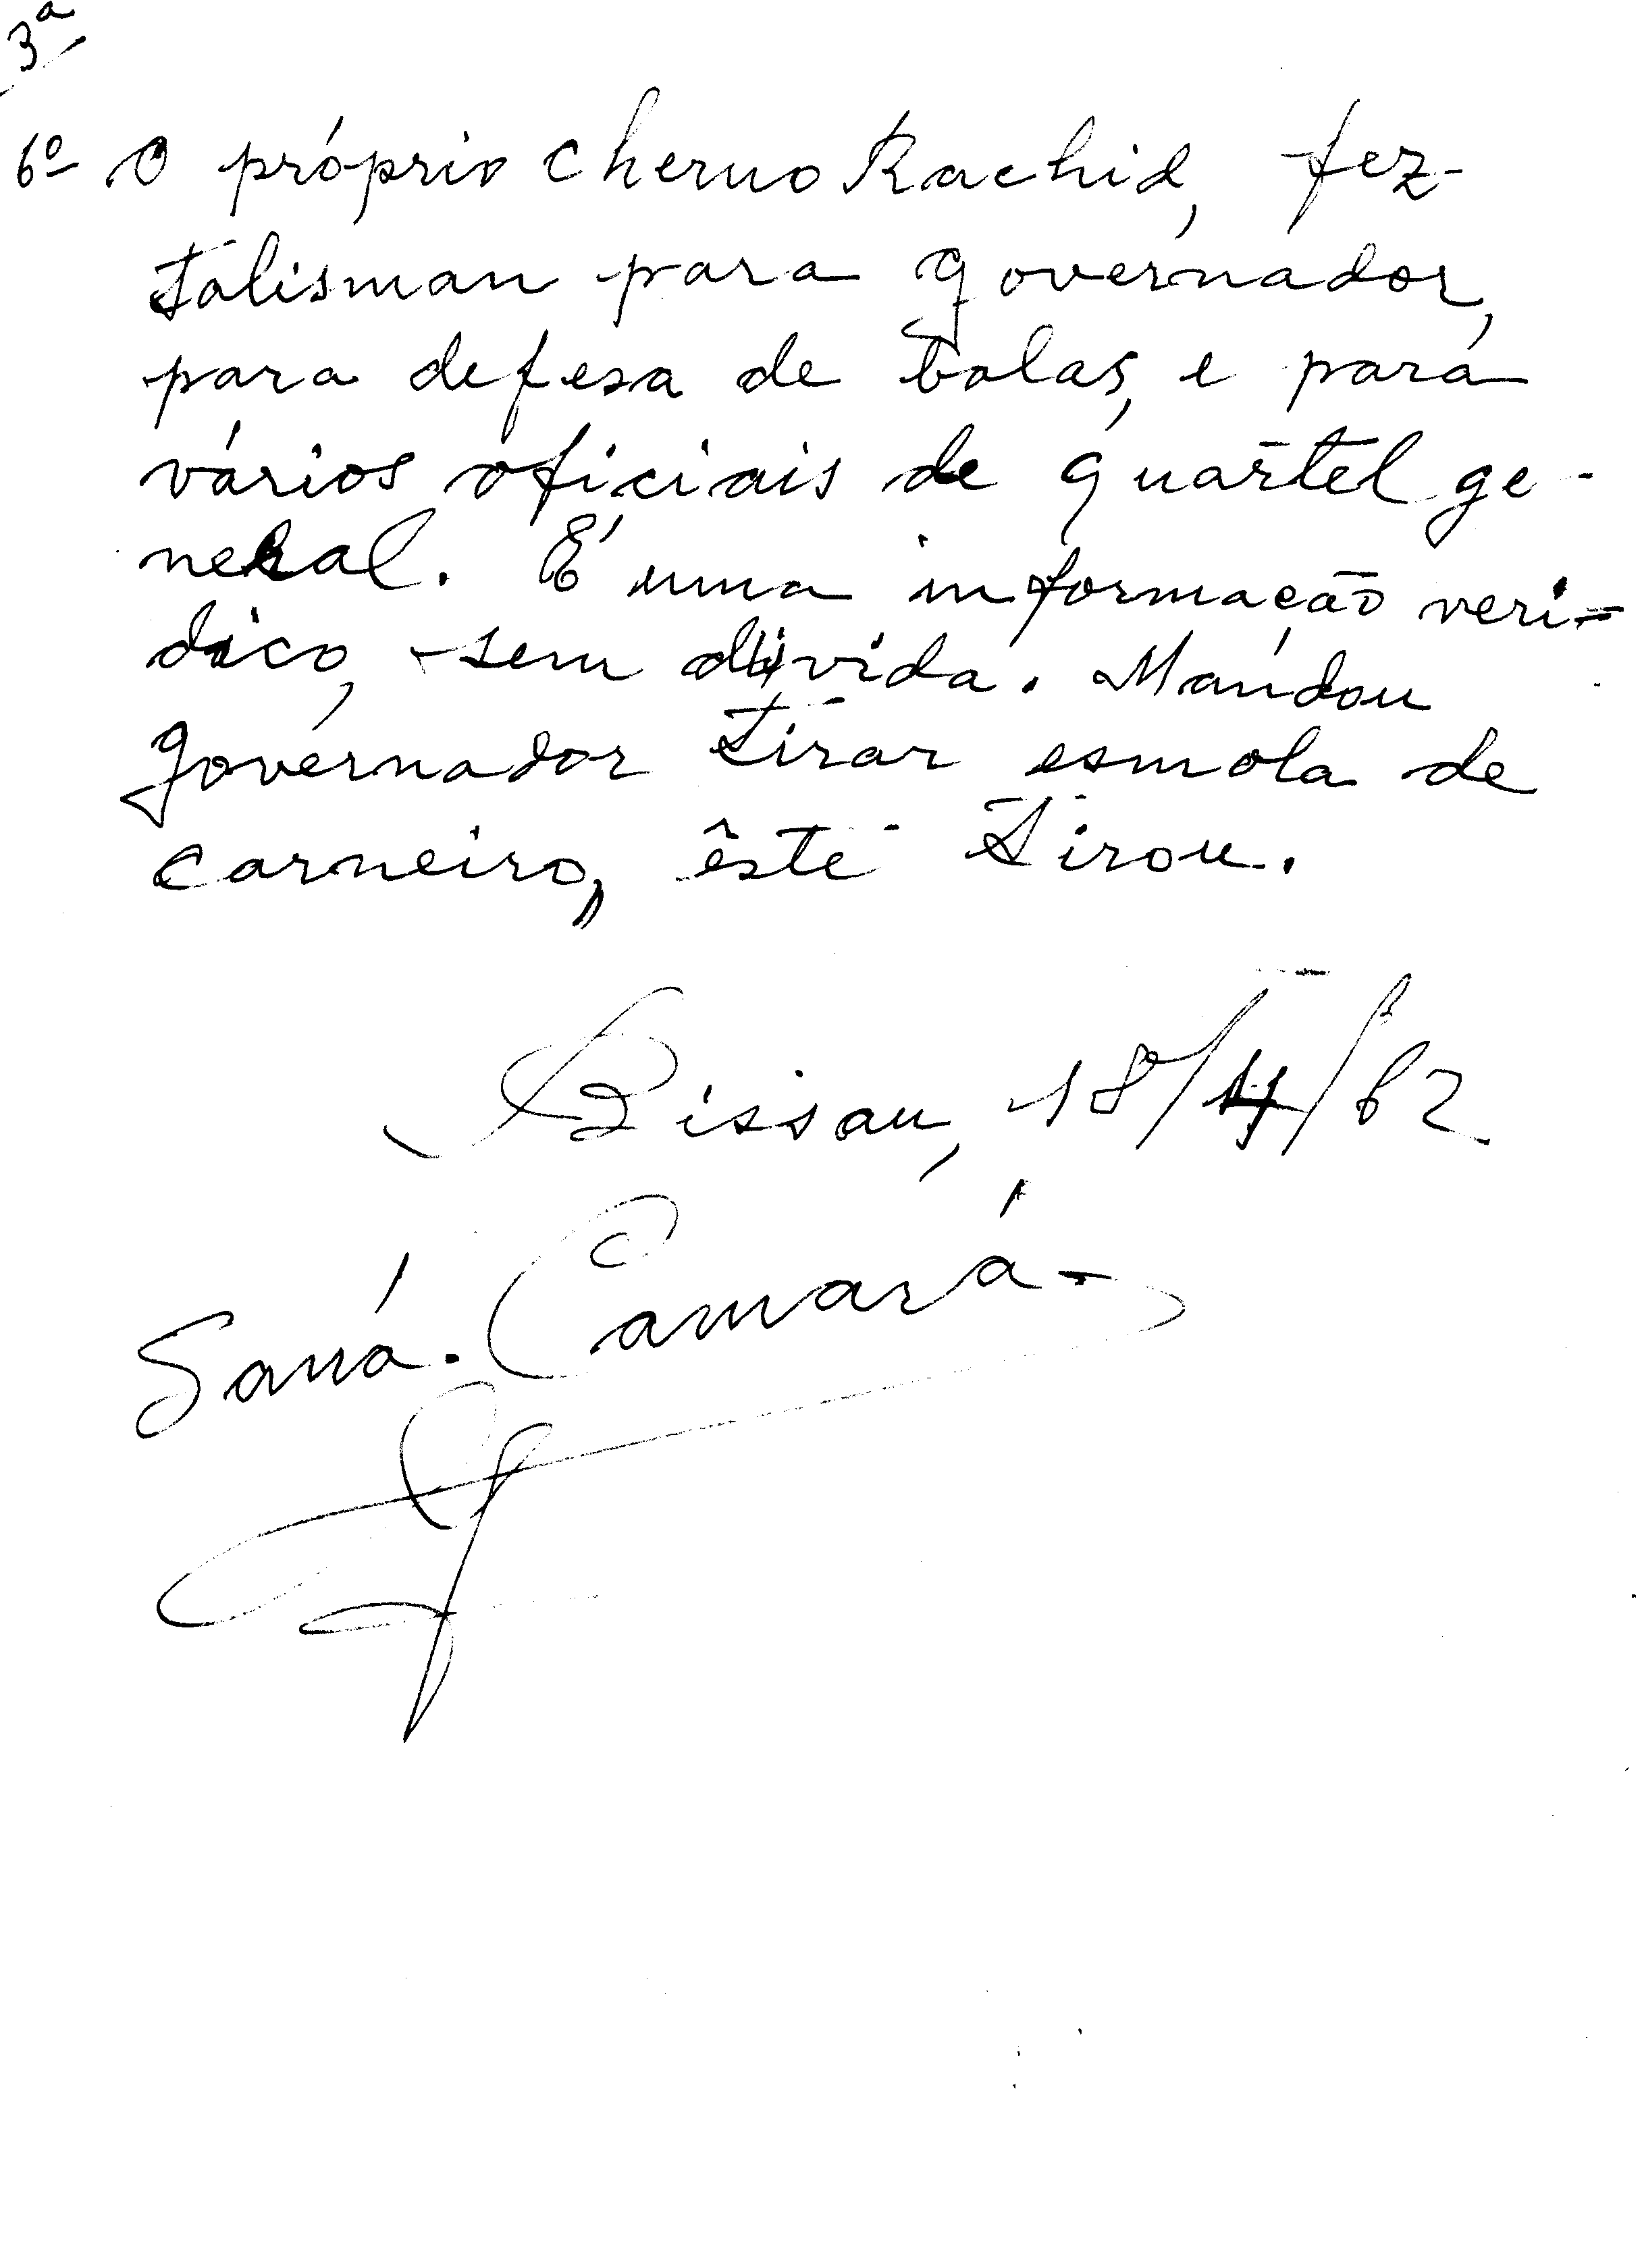 3ª
6º O próprio Cherno Rachid, fez
talisman para governador,
para defesa de balas, e para
vários oficiais de quartel ge-
neral. É uma informação veri-
dico, sem dúvida. Mandou
governador tirar esmola de
carneiro, êste tirou.
Bissau, 18/4/62
Saná. Camará-